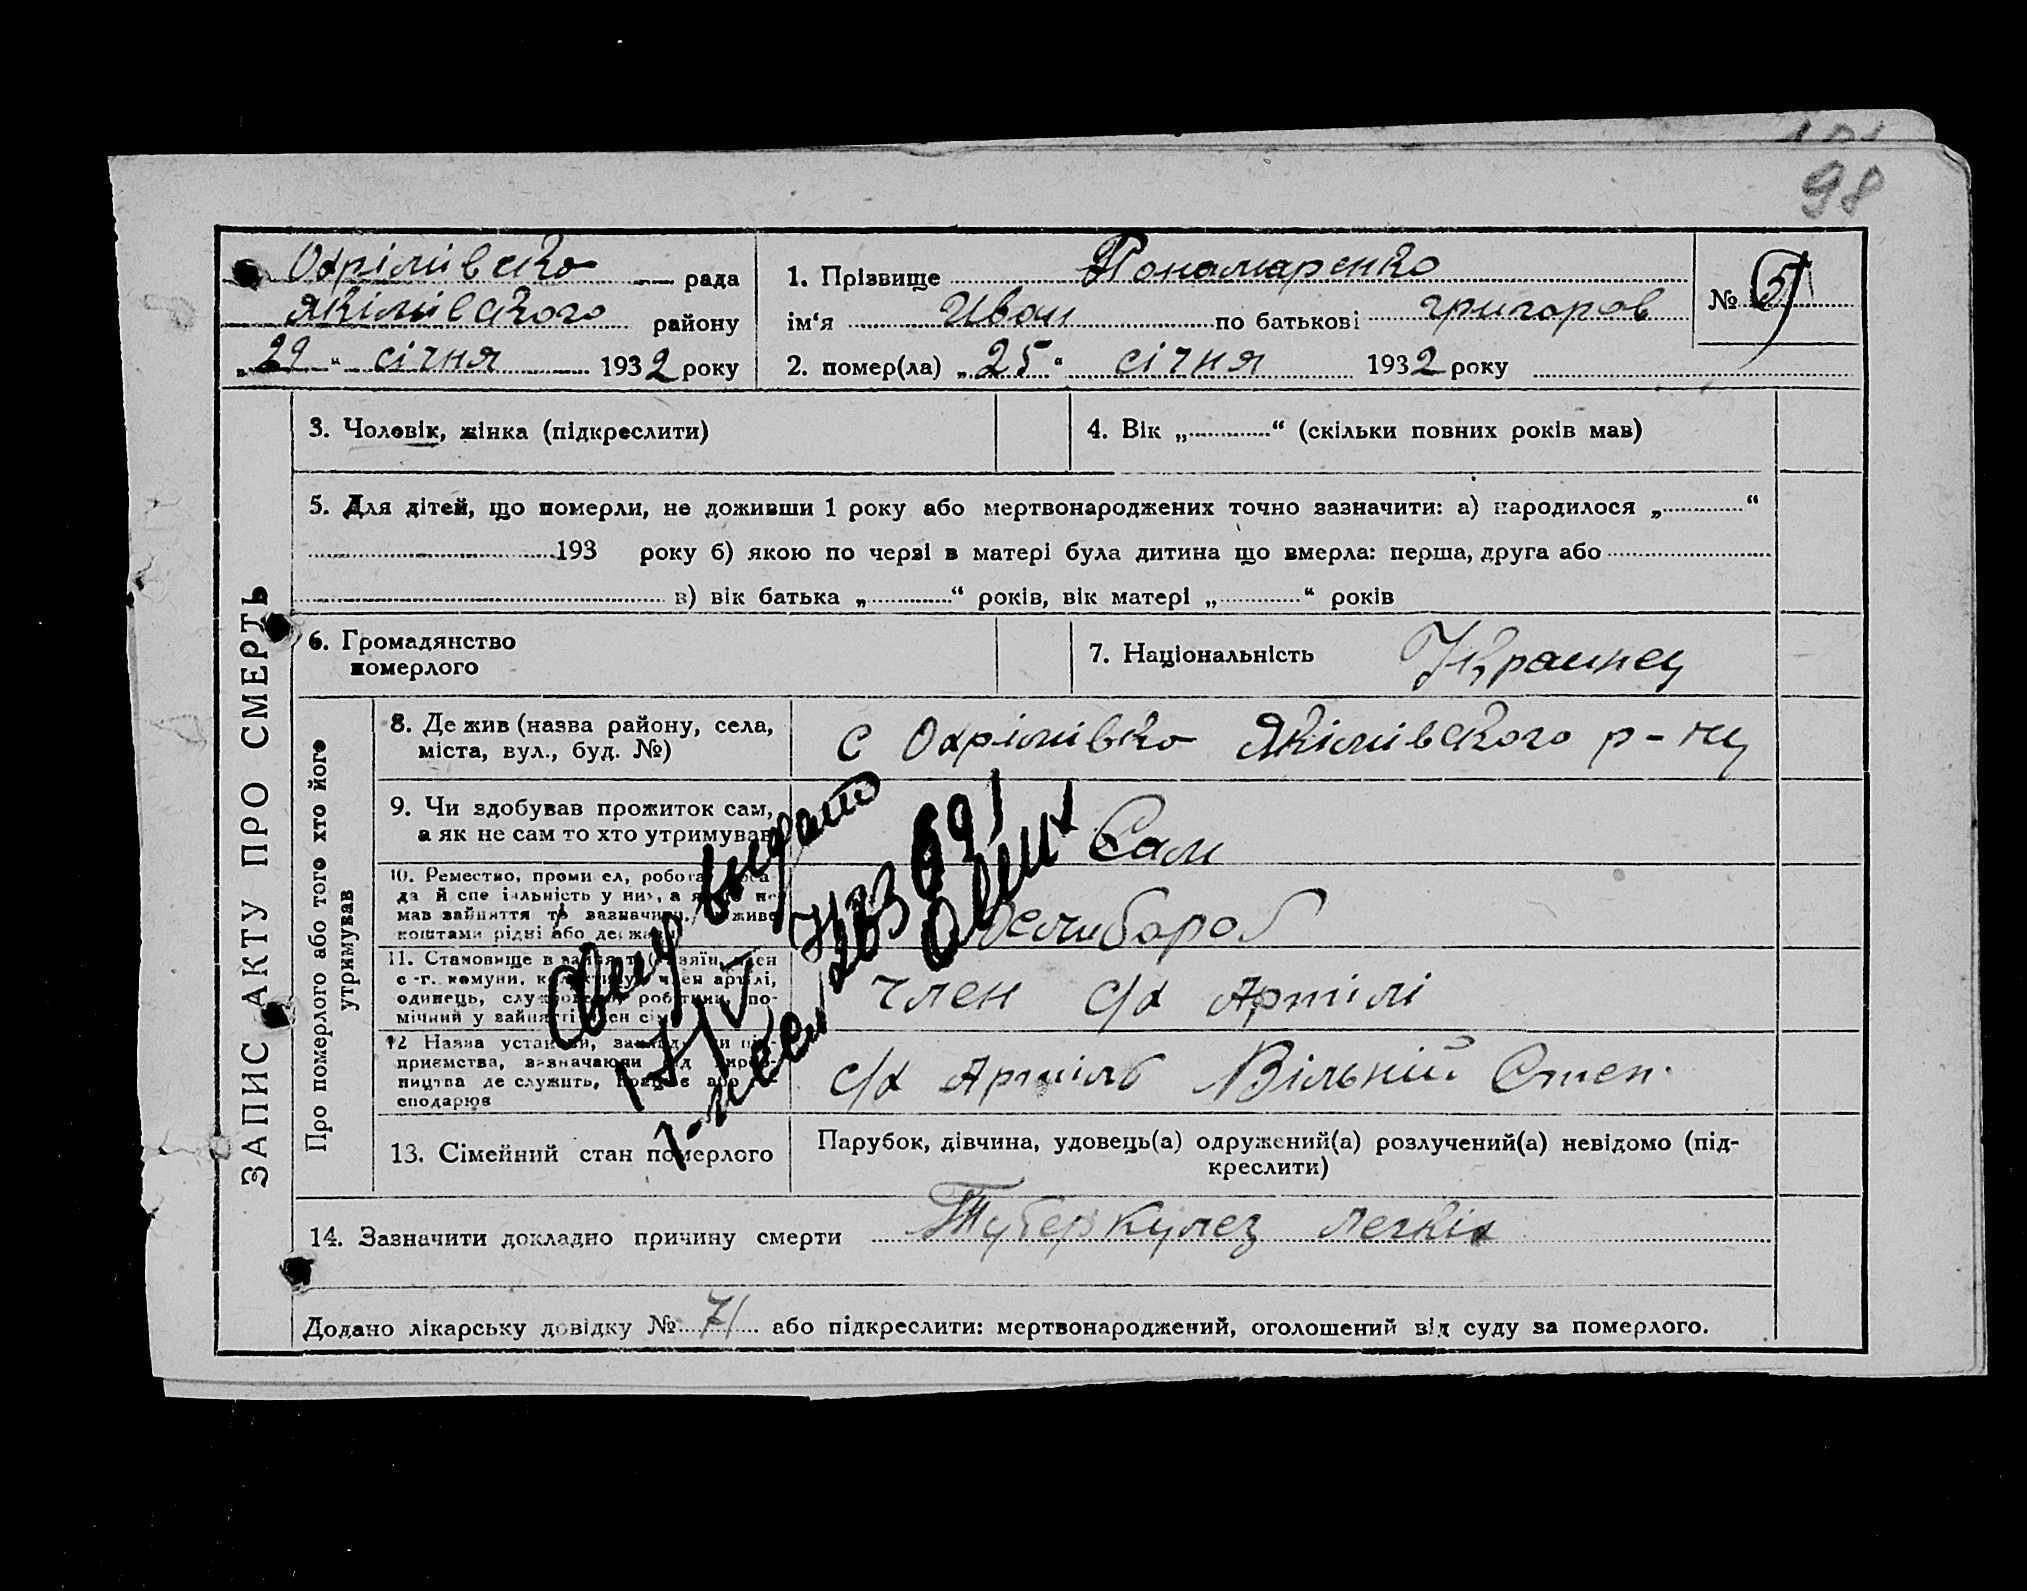 98
Охрімівско рада
Якімівского району
„29“ січня 1932 року
1. Прізвище Пономаренко
ім‘я Иван по батькові григоров
2. помер(ла) „25“ січня 1932 року
№ 5
ЗАПИС АКТУ ПРО СМЕРТЬ
3. Чоловік, жінка (підкреслити)
4. Вік „ “ (скільки повних років мав)
5. Для дітей, що померли, не доживши 1 року або мертвонароджених точно зазначити: а) народилося „ “
193 року б) якою по черзі в матері була дитина що вмерла: перша, друга або
в) вік батька „ “ років, вік матері „ “ років
6. Громадянство
померлого
7. Національність Украинец
Про померлого або того хто його
утримував
8. Де жив (назва району, села,
міста, вул., буд. №)
с Охрімівко Якімівского р-ну
9. Чи здобував прожиток сам,
а як не сам то хто утримував
Сам
10. Ремество, проми ел, робота,
да й спе іильність у них, а
мав зайняття то зазначити, живе
коштами рідні або держави
Хлибороб
11. Становище в
с-г. комуни, член артілі,
одинець, робітник, по-
мічний у зайнятті член сім
член с/х Артілі
12 Назва установи,
приємства, зазначаючи
ництва де служить, працює або
сподарює
с/х Артіль Вільний Степ.
видано
13. Сімейний стан померлого
Парубок, дівчина, удовець(а) одружений(а) розлучений(а) невідомо (під-
креслити)
14. Зазначити докладно причину смерти Туберкулез легкіх
Додано лікарську довідку № 71 або підкреслити: мертвонароджений, оголошений від суду за померлого.